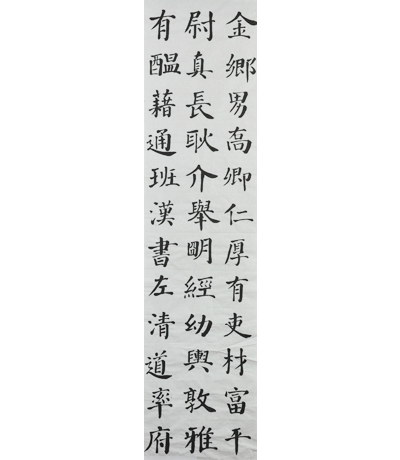 金鄉男高卿仁厚有吏材富平
尉真長耿介舉明經幼輿敦雅
有醞藉通班漢書左清道率府